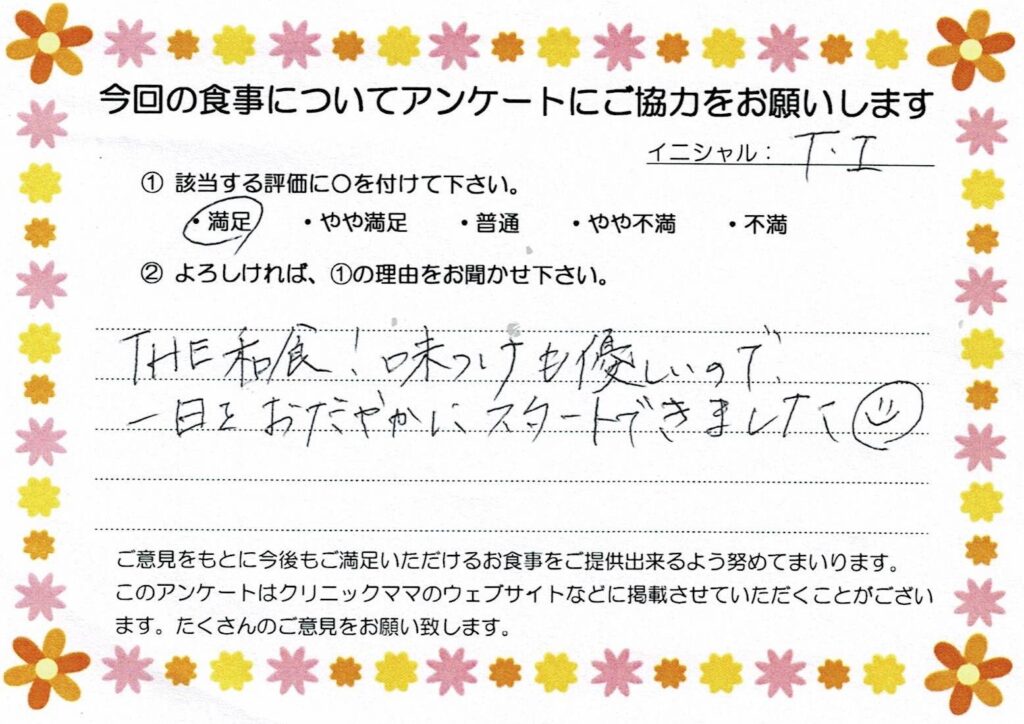 今回の食事についてアンケートにご協力をお願いします
イニシャル： T.I
① 該当する評価に〇を付けて下さい。
・満足 ・やや満足 ・普通 ・やや不満 ・不満
② よろしければ、①の理由をお聞かせ下さい。
THE和食！味つけも優しいので、
一日をおだやかにスタートできました
ご意見をもとに今後もご満足いただけるお食事をご提供出来るよう努めてまいります。
このアンケートはクリニックママのウェブサイトなどに掲載させていただくことがござい
ます。たくさんのご意見をお願い致します。